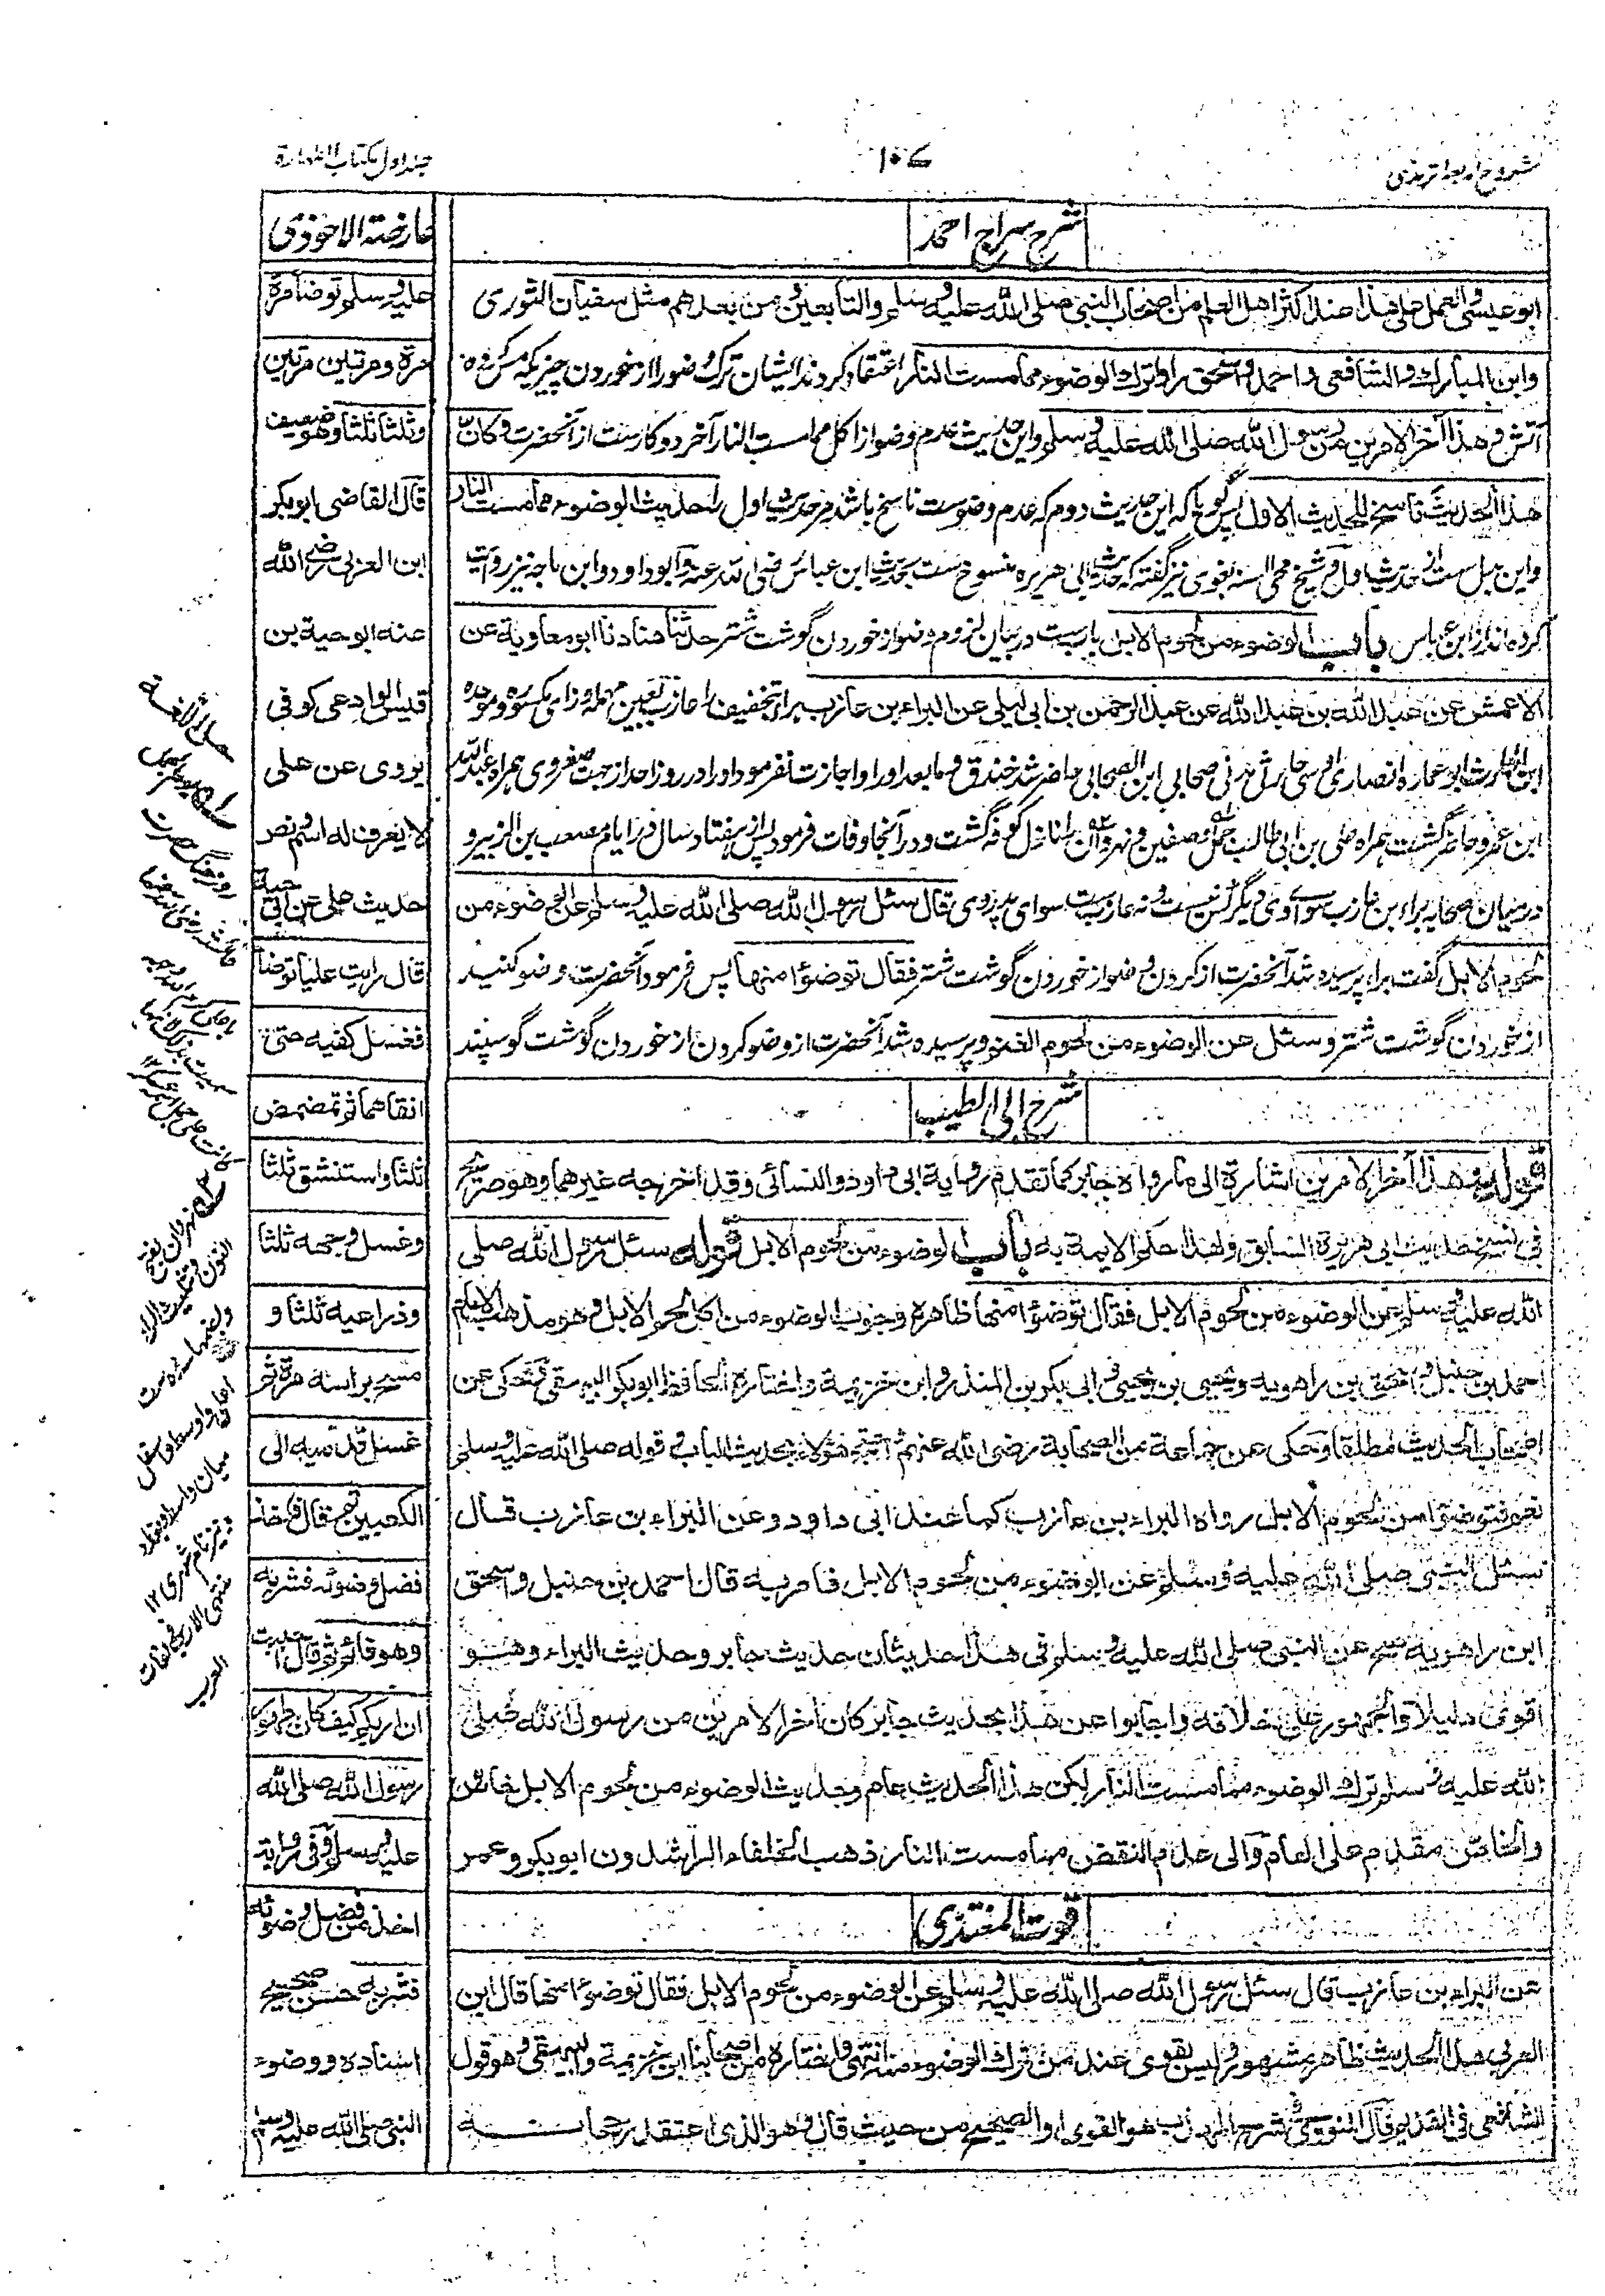 شروح اربعه ترمذی
۱۰۷
جلد اول کتاب الطهارة
شرح سراج احمد
ابو عیسی والعمل علی هذا عند اکثر اهل العلم من اصحاب النبی صلی الله علیه وسلم والتابعین ومن بعدهم مثل سفیان الثوری
وابن المبارك والشافعی واحمد واسحق راوا ترك الوضوء مما مست النار اعتقاد کردند ایشان ترک وضو را از خوردن چیزیکه مس کرده
آتش وهذا آخر الامرین من رسول الله صلی الله علیه وسلم واین حدیث عدم وضو از اکل مما مست النار آخر دو کارست از آنحضرت وکان
هذا الحدیث ناسخ للحدیث الاول پس گویا که این حدیث دوم که عدم وضوست ناسخ باشد مر حدیث اول را حدیث الوضوء مما مست النار
واین بدل ست از حدیث اول وشیخ محی السنه بغوی نیز گفته که حدیث ابی هریره منسوخ ست بحدیث ابن عباس رضی الله عنه وابو داود وابن ماجه نیز روایت
کرده اند از ابن عباس باب الوضوء من لحوم الابل باب ست در بیان لزوم وضو از خوردن گوشت شتر حدثنا هناد نا ابو معاویة عن
الاعمش عن عبد الله بن عبد الله عن عبد الرحمن بن ابی لیلی عن البراء بن عازب براء بتخفیف را عازب بعین مهمله وزای مکسوره وموحده
ابن الحارث ابو عماره انصاری اوسی حارثی مدنی صحابی ابن الصحابی حاضر شد خندق وما بعد او را واجازت نفرمود او را در روز احد از جهت صغر وی همراه عبد الله
ابن عمر وحاضر گشت همراه علی بن ابی طالب جمل وصفین ونهروان را نازل کوفه گشت ودر آنجا وفات فرمود پس از هفتاد سال در ایام مصعب بن الزبیر و
در میان صحابه براء بن عازب سوای وی دیگر کس نیست ونه عازب ست سوای پدر وی قال سئل رسول الله صلی الله علیه وسلم عن الوضوء من
لحوم الابل گفت براء پرسیده شد آنحضرت از کردن وضو از خوردن گوشت شتر فقال توضؤا منها پس فرمود آنحضرت وضو کنید
از خوردن گوشت شتر وسئل عن الوضوء من لحوم الغنم وپرسیده شد آنحضرت از وضو کردن از خوردن گوشت گوسپند
شرح ابی الطیب
قوله وهذا آخر الامرین اشارة الی ما رواه جابر کما تقدم روایة ابی داود والنسائی وقد اخرجه غیرهما وهو صریح
فی نسخ حدیث ابی هریرة السابق ولهذا حکم الایمة به باب الوضوء من لحوم الابل قوله سئل رسول الله صلی
الله علیه وسلم عن الوضوء من لحوم الابل فقال توضؤا منها ظاهره وجوب الوضوء من اکل لحم الابل وهو مذهب الامام
احمد بن حنبل واسحق بن راهویه ویحیی بن یحیی وابی بکر بن المنذر وابن خزیمة واختاره الحافظ ابو بکر البیهقی وحکی عن
اصحاب الحدیث مطلقا وحکی عن جماعة من الصحابة رضی الله عنهم احتج هؤلاء بحدیث الباب وقوله صلی الله علیه وسلم
نعم فتوضؤا من لحوم الابل رواه البراء بن عازب کما عند ابی داود وعن البراء بن عازب قال
سئل النبی صلی الله علیه وسلم عن الوضوء من لحوم الابل فامر به قال احمد بن حنبل واسحق
ابن راهویه صح عن النبی صلی الله علیه وسلم فی هذا حدیثان حدیث جابر وحدیث البراء وهو
اقوی دلیلا والجمهور علی خلافه واجابوا عن هذا بحدیث جابر کان آخر الامرین من رسول الله صلی
الله علیه وسلم ترك الوضوء مما مست النار لکن هذا الحدیث عام وحدیث الوضوء من لحوم الابل خاص
والخاص مقدم علی العام والی عدم النقض مما مست النار ذهب الخلفاء الراشدون ابو بکر وعمر
قوت المغتذی
عن البراء بن عازب قال سئل رسول الله صلی الله علیه وسلم عن الوضوء من لحوم الابل فقال توضؤا منها قال ابن
العربی هذا الحدیث ظاهر مشهور ولیس یقوی عند من ترك الوضوء منه انتهی واختاره من اصحابنا ابن خزیمة والبیهقی وهو قول
الشافعی فی القدیم قال النووی فی شرح المهذب هو القوی او الصحیح من حدیث قال وهو الذی اعتقد رجحانه
عارضة الاحوذی
علیه وسلم توضأ مرة
مرة ومرتین مرتین
وثلثا ثلثا وهو ضعیف
قال القاضی ابو بکر
ابن العربی رضی الله
عنه ابو حیة بن
قیس الوادعی کوفی
یروی عن علی
لا یعرف له اسم نصر
حدیث علی عن ابی حیة
قال رایت علیا توضأ
فغسل کفیه حتی
انقاهما ثم تمضمض
ثلثا واستنشق ثلثا
وغسل وجهه ثلثا
وذراعیه ثلثا و
مسح براسه مرة ثم
غسل قدمیه الی
الکعبین ثم قال فاخذ
فضل وضوئه فشربه
وهو قائم ثم قال احببت
ان اریکم کیف کان طهور
رسول الله صلی الله
علیه وسلم وفی روایة
اخذ من فضل وضوئه
فشربه حسن صحیح
اسناده ووضوء
النبی صلی الله علیه وسلم
روز جنگ حضرت
نهروان بفتح
النون وتثلیث الراء
اعلی واوسط واسفل
میان واسط وبغداد
ونیز نام شهری ۱۲
منتهی الارب فی لغات
العرب